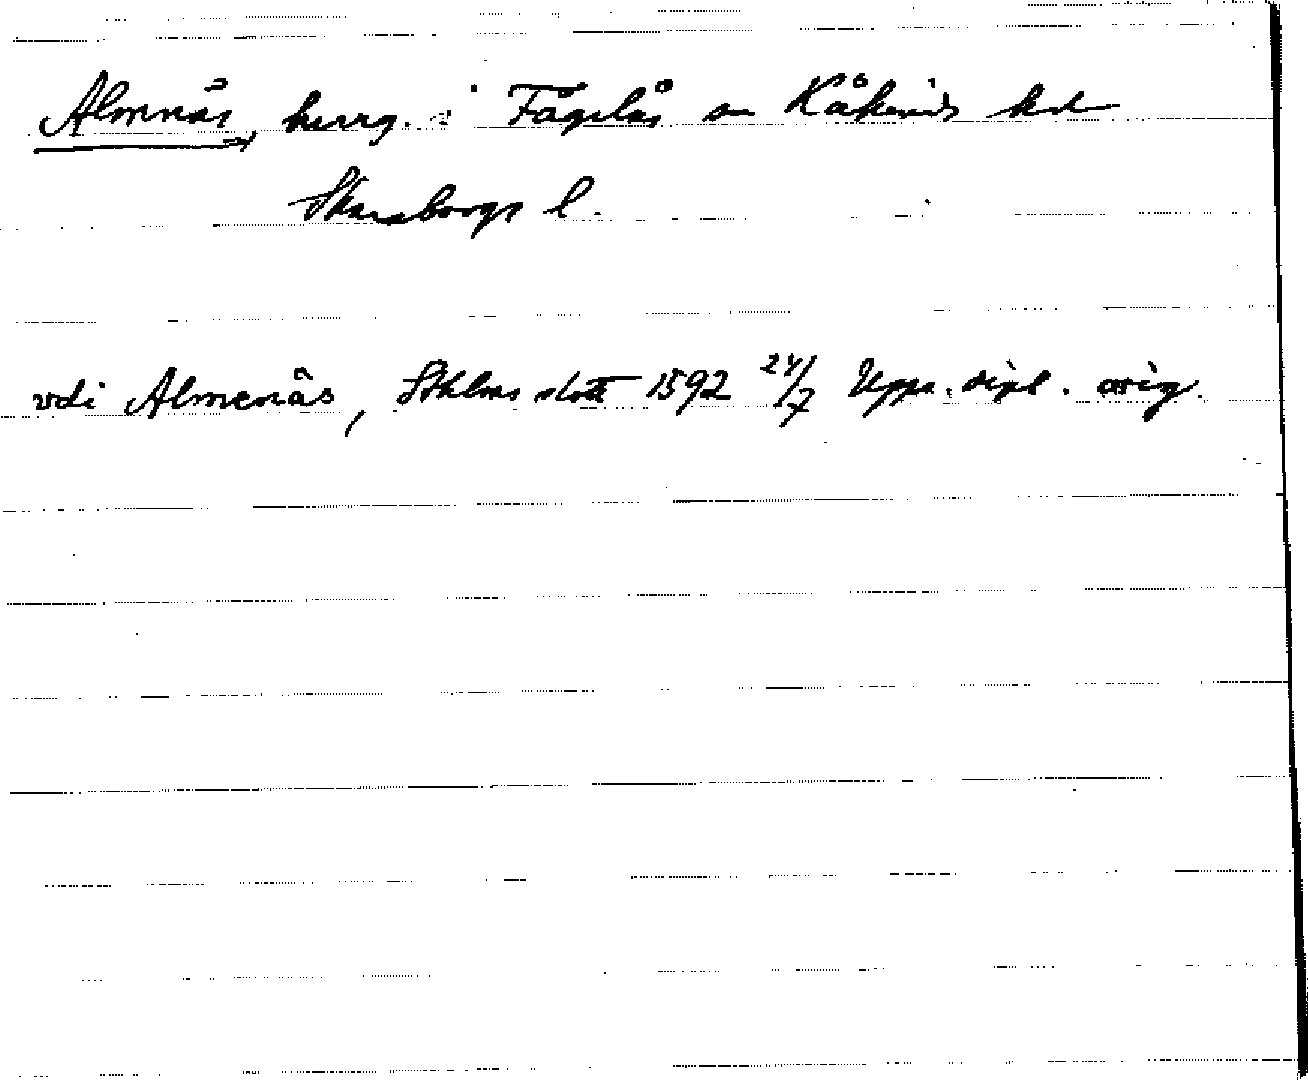 Almnäs, herrg. i Fågelås sn Kåkinds hd
Skaraborgs l.
vdi Almenäs, Sthlms slott 1592 24/7 Upps. dipl. orig.